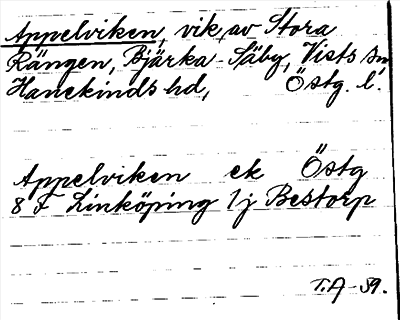 Appelviken, vik av Stora
Rängen, Bjärka-Säby, Vists sn
Hanekinds hd, Östg. l.
Appelviken ek Östg
8 F Linköping 1j Bestorp
T.A-59.